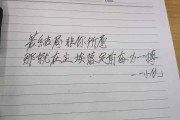 若结局非你所愿
那就在尘埃落定前奋力一搏